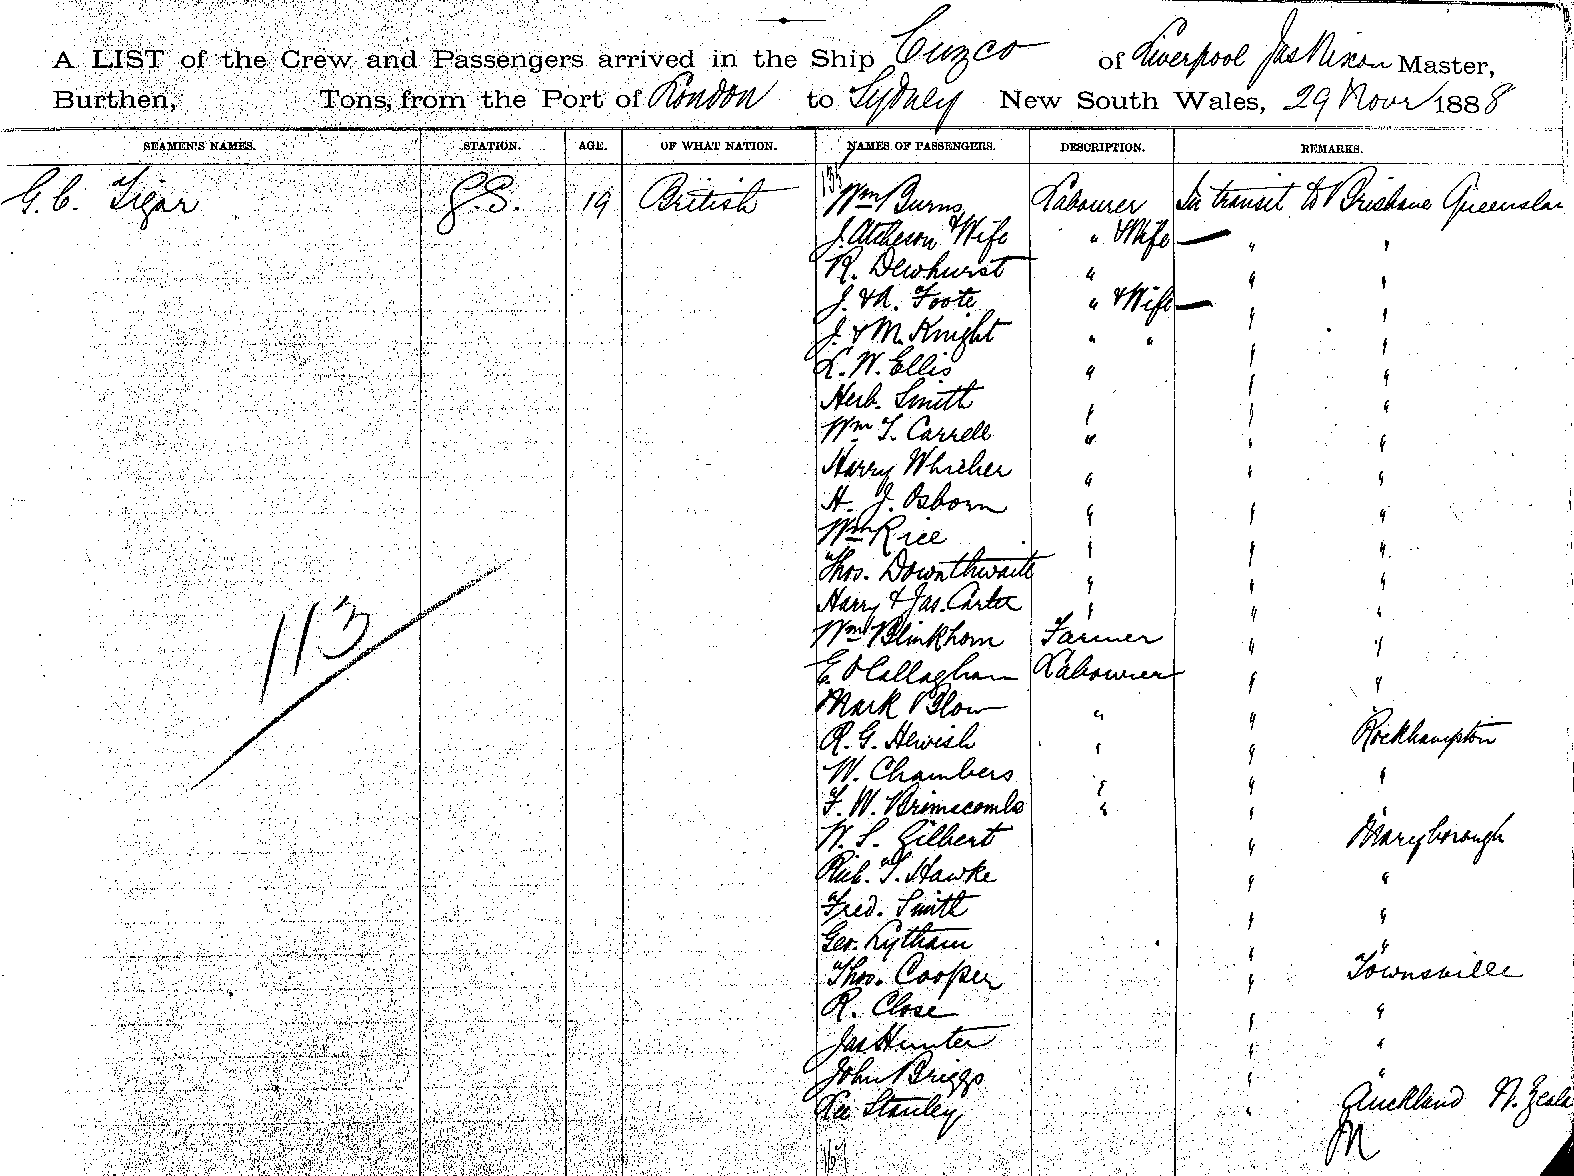 A LIST of the Crew and Passengers arrived in the Ship Cuzco of Liverpool Jas Nixon Master,
Burthen, Tons, from the Port of London to Sydney New South Wales, 29 Novr 1888
SEAMEN'S NAMES. STATION. AGE. OF WHAT NATION. NAMES OF PASSENGERS. DESCRIPTION. REMARKS.
135
G. C. Tigar G.S. 19 British Wm Burns Labourer In transit to Brisbane Queenslan
J. Atcheson & Wife " & Wife — " "
R. Dewhurst " " "
J. & A. Foote " & Wife — " "
J. & M. Knight " " " "
L. W. Ellis " " "
Herb. Smith " " "
Wm T. Carrell " " "
Harry Whicher " " "
H. J. Osborn " " "
Wm Rice " " "
Thos. Downthwaite " " "
Harry & Jas. Carter " " "
113
Wm Blinkhorn Farmer " "
E. O'Callaghan Labourer " "
Mark Blow " "
R. G. Hewish " " Rockhampton
W. Chambers " " "
F. W. Brimacombe " " "
W. S. Gilbert " Maryborough
Rich. T. Hawke " "
Fred. Smith " "
Geo. Lytham " "
Thos. Cooper " Townsville
R. Close " "
Jas Hunter " "
John Briggs " "
Stanley " Auckland N. Zeala